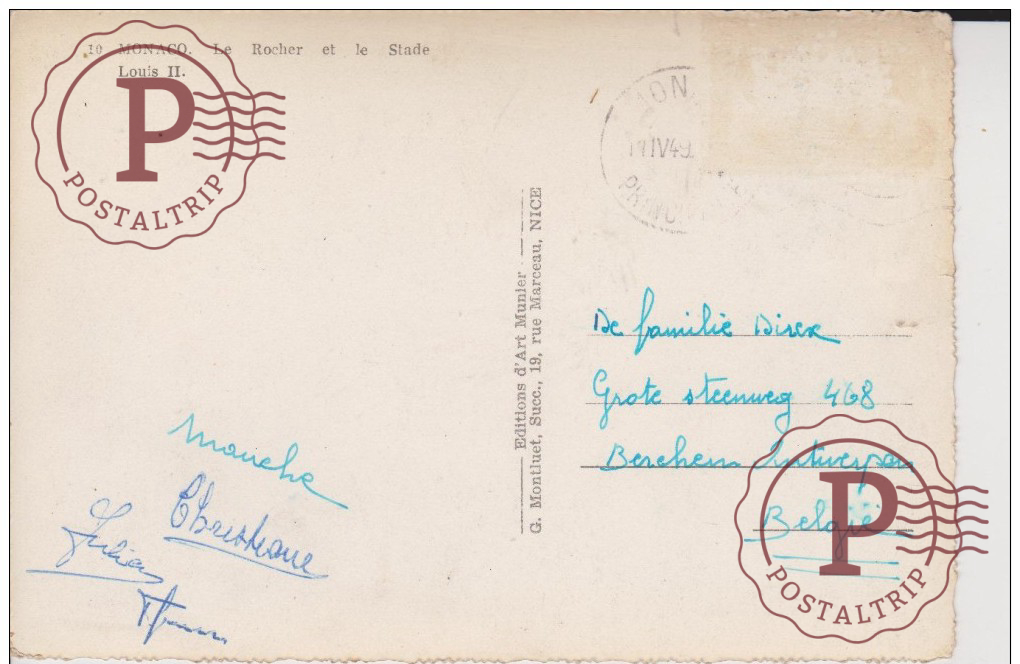 10 MONACO. Le Rocher et le Stade
Louis II.
P
POSTALTRIP
MON
IV 49
Editions d'Art Munier
G. Montluet, Succ., 19, rue Marceau, NICE
De familie Direx
Grote steenweg 468
Berchem Antwerpen
België
Mouche
Christiane
Julien
P
POSTALTRIP